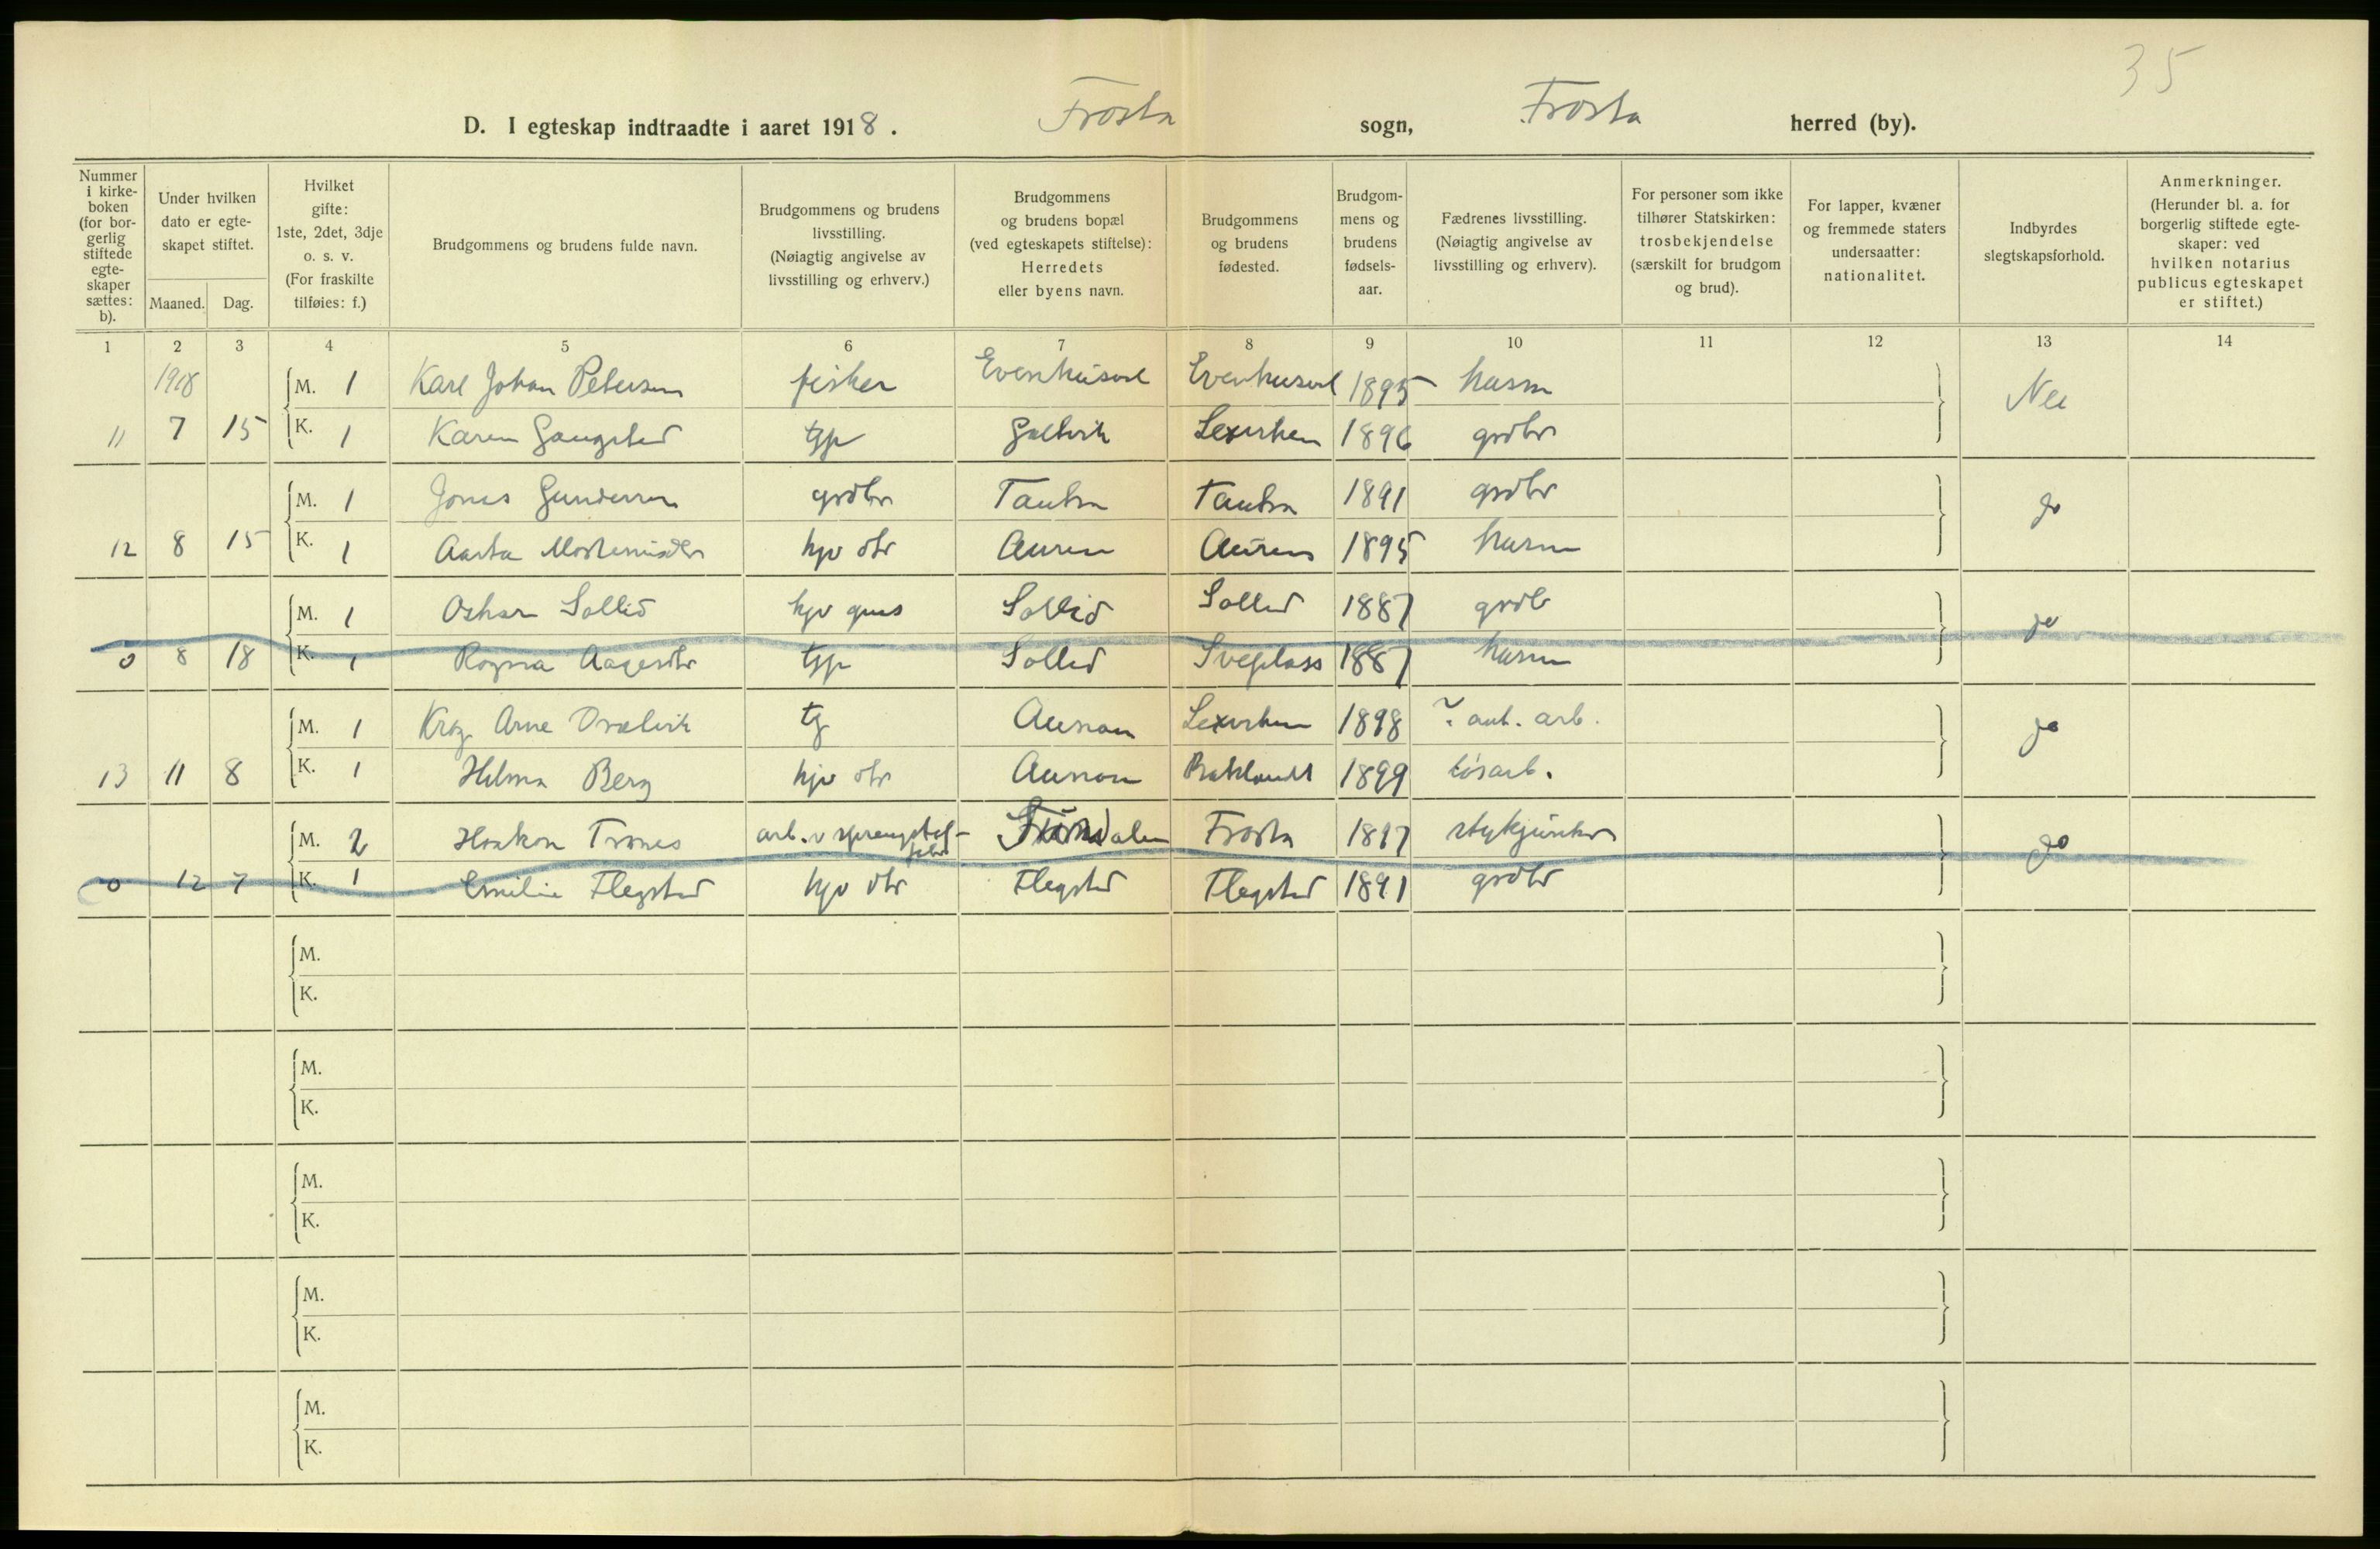 35
D. I egteskap indtraadte i aaret 1918. Frosta sogn, Frosta herred (by).
Nummer i kirke-boken (for bor-gerlig stiftede egte-skaper sættes: b).
Under hvilken dato er egte-skapet stiftet.
Maaned. Dag.
Hvilket gifte: 1ste, 2det, 3dje o. s. v. (For fraskilte tilføies: f.)
Brudgommens og brudens fulde navn.
Brudgommens og brudens livsstilling. (Nøiagtig angivelse av livsstilling og erhverv.)
Brudgommens og brudens bopæl (ved egteskapets stiftelse): Herredets eller byens navn.
Brudgommens og brudens fødested.
Brudgom-mens og brudens fødsels-aar.
Fædrenes livsstilling. (Nøiagtig angivelse av livsstilling og erhverv).
For personer som ikke tilhører Statskirken: trosbekjendelse (særskilt for brudgom og brud).
For lapper, kvæner og fremmede staters undersaatter: nationalitet.
Indbyrdes slegtskapsforhold.
Anmerkninger. (Herunder bl. a. for borgerlig stiftede egte-skaper: ved hvilken notarius publicus egteskapet er stiftet.)
1 2 3 4 5 6 7 8 9 10 11 12 13 14
1918 M. 1 Karl Johan Petersen fisker 1895 husm Nei
11 7 15 K. 1 Karen tjp 1896 grdbr
M. 1 Jonas Gundersen grdbr Tautra Tautra 1891 grdbr
12 8 15 K. 1 Aasta hjv dtr Auren Auren 1895 husm
M. 1 Oskar Sollid hjv Sollid Sollid 1887 grdb
0 8 18 K. 1 Ragna tjp Sollid Sveplass 1887 husm
M. 1 Arne tg Aunan 1898 arb.
13 11 8 K. 1 Helma Berg hjv dtr Aunan 1899 løsarb.
M. 2 Haakon Trones arb. v Frosta 1897
0 12 7 K. 1 Emilie Flegstad hjv dtr Flegstad Flegstad 1891 grdbr
M.
K.
M.
K.
M.
K.
M.
K.
M.
K.